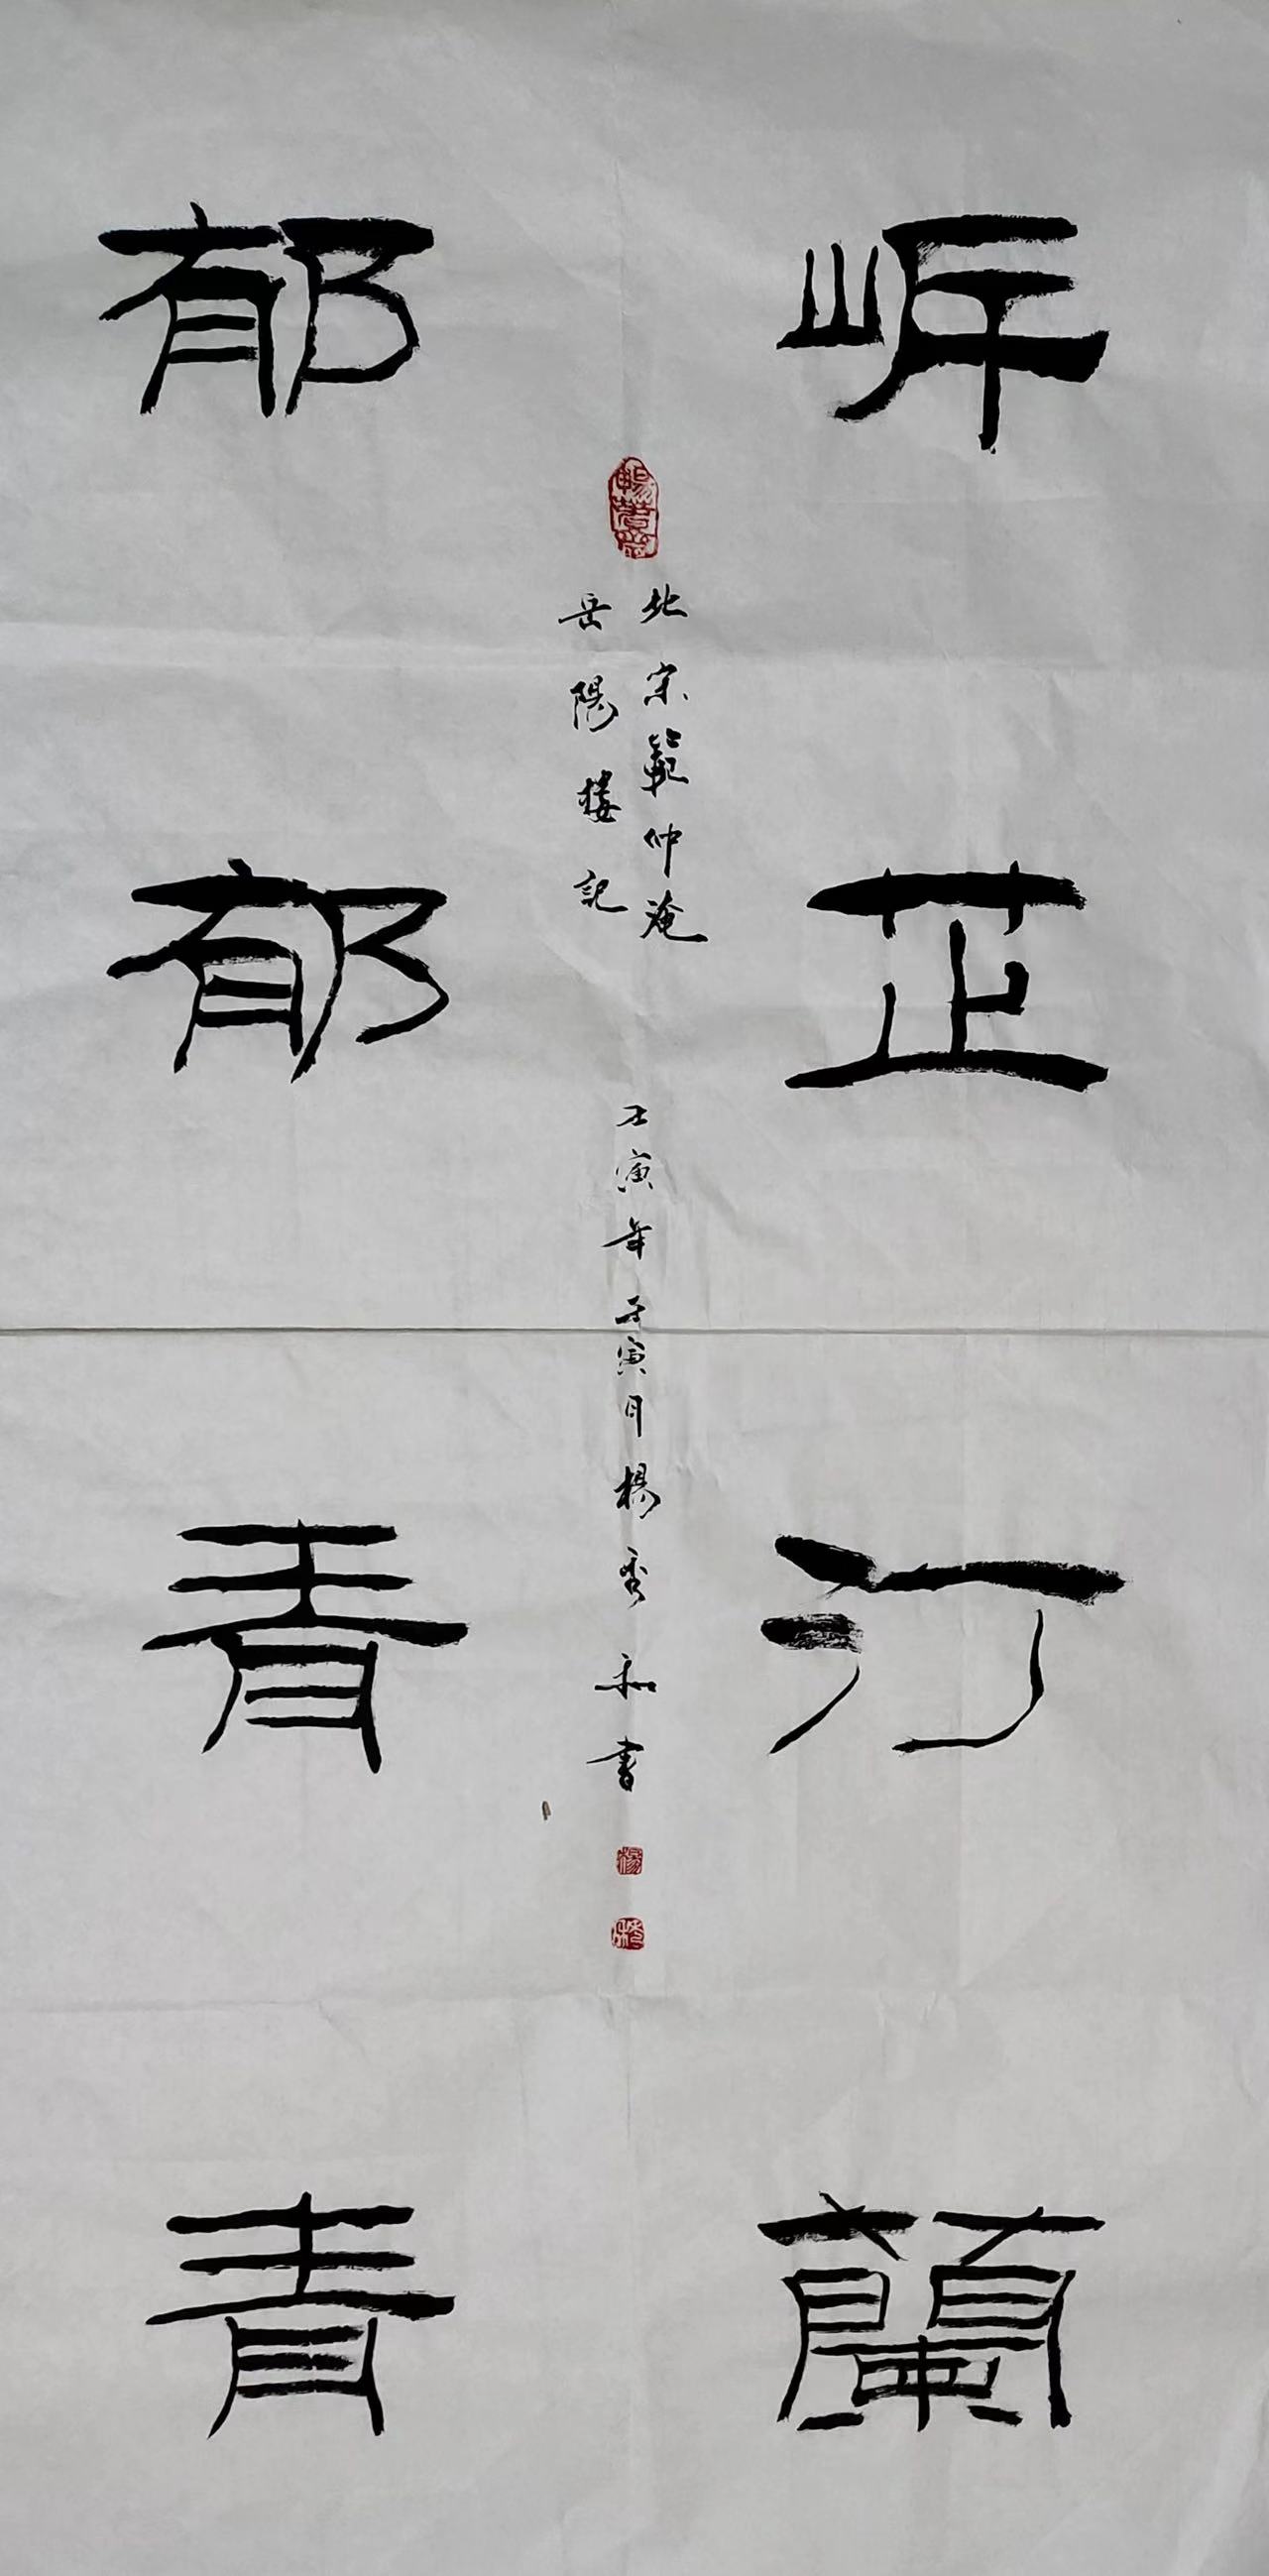 岸芷汀蘭
郁郁青青
北宋範仲淹
岳陽樓記
壬寅年壬寅月楊秀和書
楊